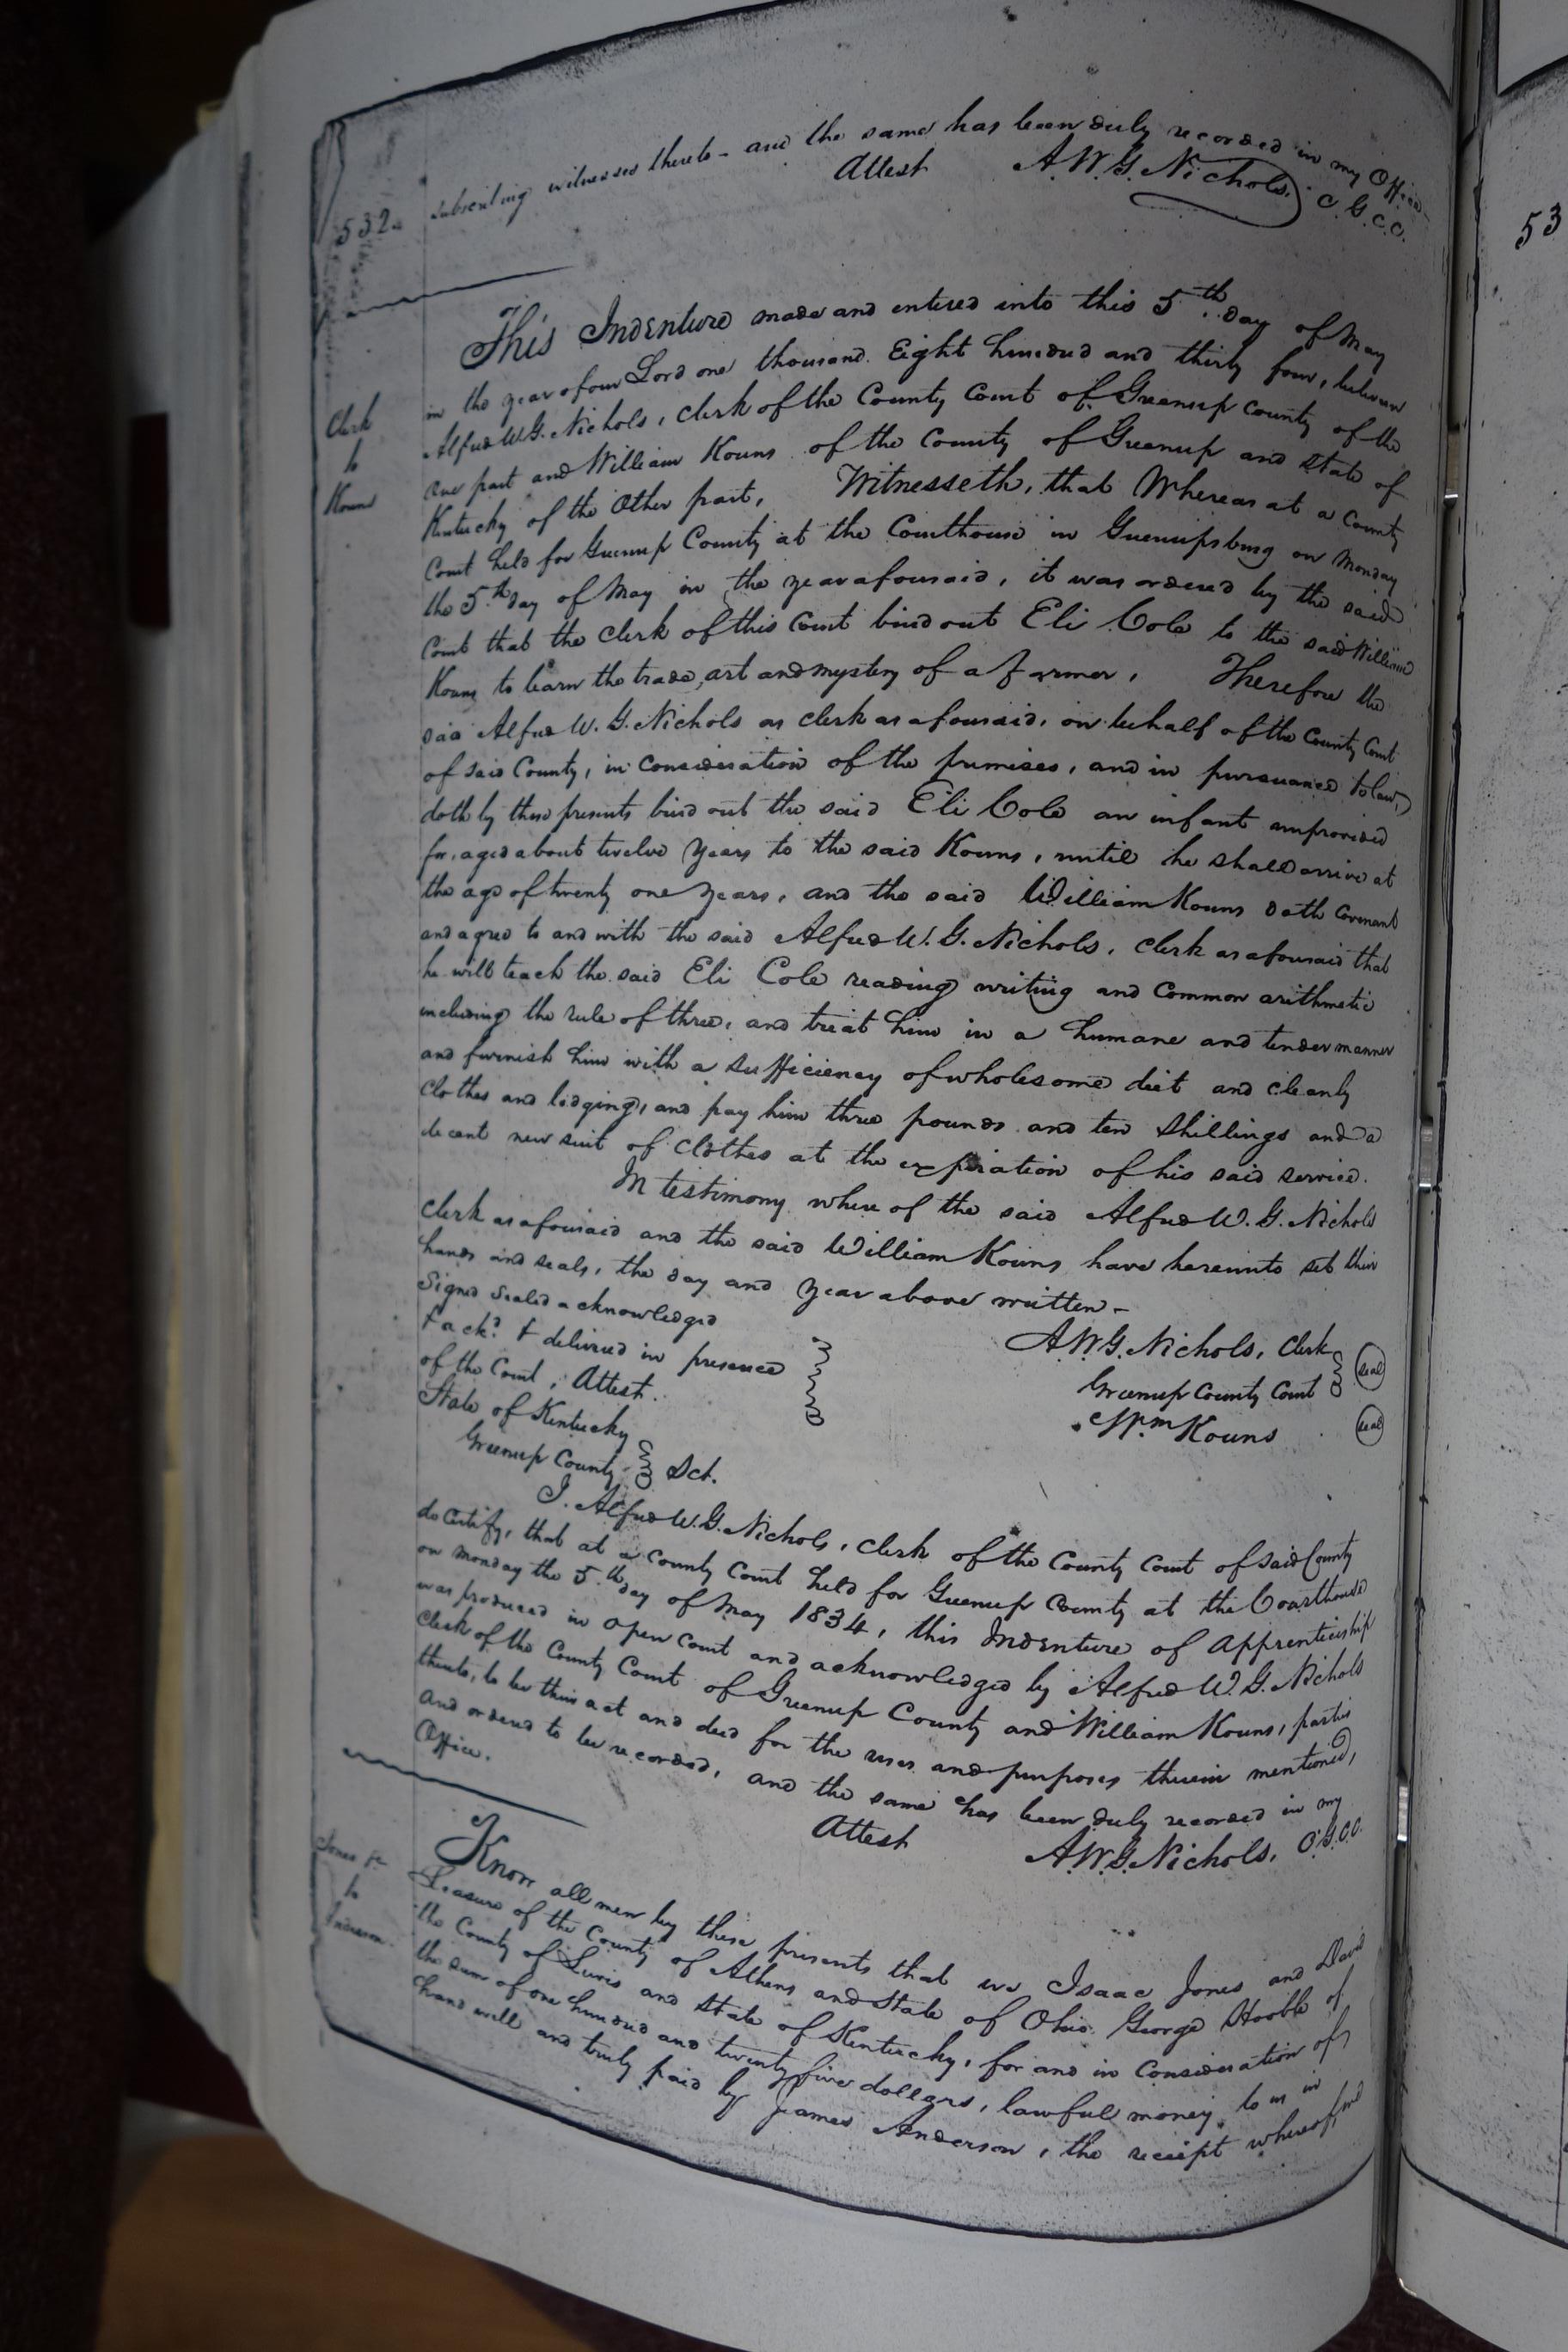 532.
subscribing witnesses thereto - and the same has been duly recorded in my Office -
Attest A.W.G. Nichols. C.G.C.C.
53
This Indenture made and entered into this 5th. day of May
in the year of our Lord one thousand Eight hundred and thirty four, between
Clerk
to
Kouns
Alfred W.G. Nichols, clerk of the County Court of Greenup County of the
one part and William Kouns of the County of Greenup and State of
Kentucky of the Other part, Witnesseth, that Whereas at a County
Court held for Greenup County at the Courthouse in Greenupsburg on Monday
the 5th day of May in the year aforesaid, it was ordered by the said
Court that the Clerk of this Court bind out Eli Cole to the said William
Kouns to learn the trade, art and mystery of a Farmer, Therefore the
said Alfred W. G. Nichols as clerk as aforesaid, on behalf of the County Court
of said County, in Consideration of the premises, and in pursuance to law,
doth by these presents bind out the said Eli Cole an infant unprovided
for, aged about twelve years to the said Kouns, until he shall arrive at
the age of twenty one years, and the said William Kouns doth Covenant
and agree to and with the said Alfred W. G. Nichols, Clerk as aforesaid that
he will teach the said Eli Cole reading writing and Common arithmetic
including the rule of three, and treat him in a humane and tender manner
and furnish him with a sufficiency of wholesome diet and cleanly
clothes and lodging, and pay him three pounds and ten Shillings and a
decent new suit of clothes at the expiration of his said service.
In testimony where of the said Alfred W. G. Nichols
Clerk as aforesaid and the said William Kouns have hereunto set their
hands and seals, the day and year above written -
Signed Sealed acknowledged
& ackd. & delivered in presence
of the Court, Attest.
A.W.G. Nichols, Clerk
Greenup County Court seal
Wm Kouns seal
State of Kentucky
Greenup County Sct.
I. Alfred W. G. Nichols, Clerk of the County Court of said County
do Certify, that at a County Court held for Greenup County at the Courthouse
on Monday the 5th. day of May 1834, this Indenture of Apprenticeship
was produced in open Court and acknowledged by Alfred W. G. Nichols
Clerk of the County Court of Greenup County and William Kouns, parties
thereto, to be their act and deed for the uses and purposes therein mentioned,
and ordered to be recorded, and the same has been duly recorded in my
Office.
Attest A.W.G. Nichols, C.G.C.C.
Jones &c
to
Anderson
Know all men by these presents that we Isaac Jones and David
of the County of Athens and State of Ohio George of
the County of Lewis and State of Kentucky, for and in Consideration of
the sum of one hundred and twenty five dollars, lawful money, to us in
hand well and truly paid by James Anderson, the receipt whereof